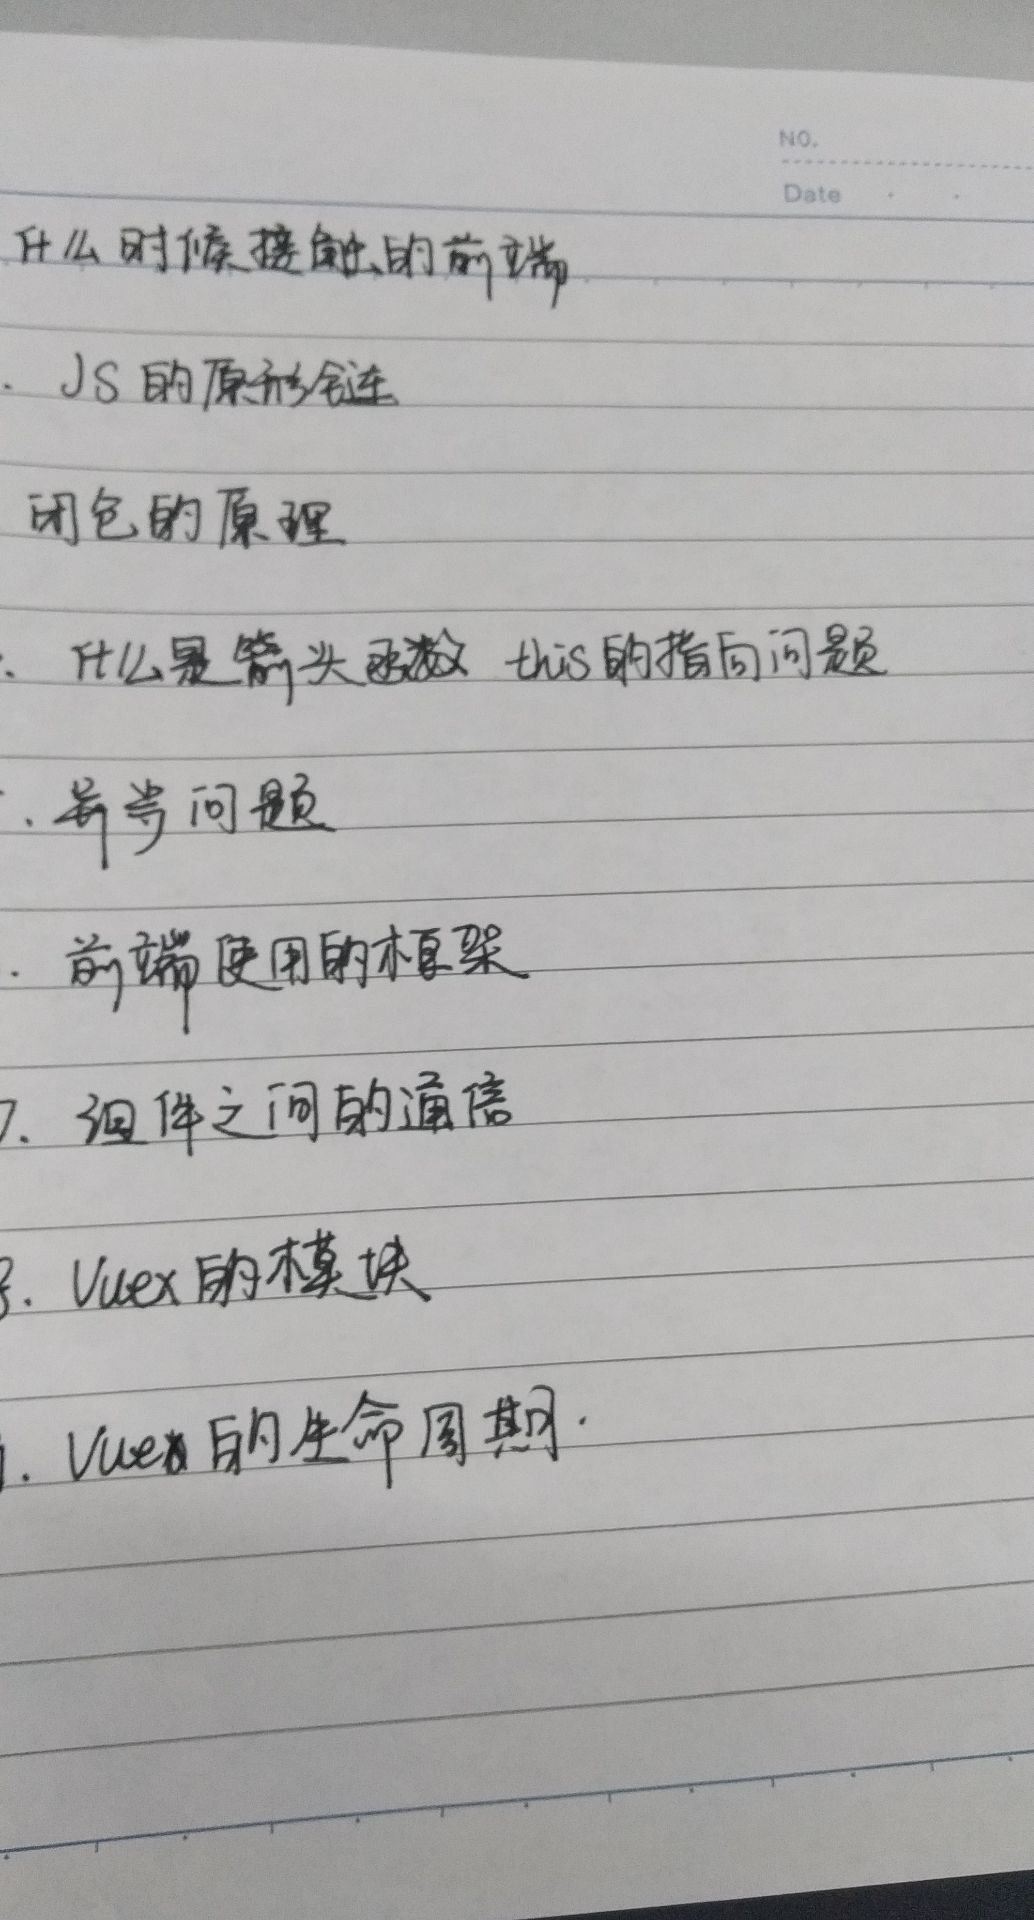 NO.
Date
什么时候接触的前端
. JS的原形链
闭包的原理
. 什么是箭头函数 this的指向问题
. 异常问题
. 前端使用的框架
7. 组件之间的通信
8. Vuex的模块
. Vuex的生命周期.